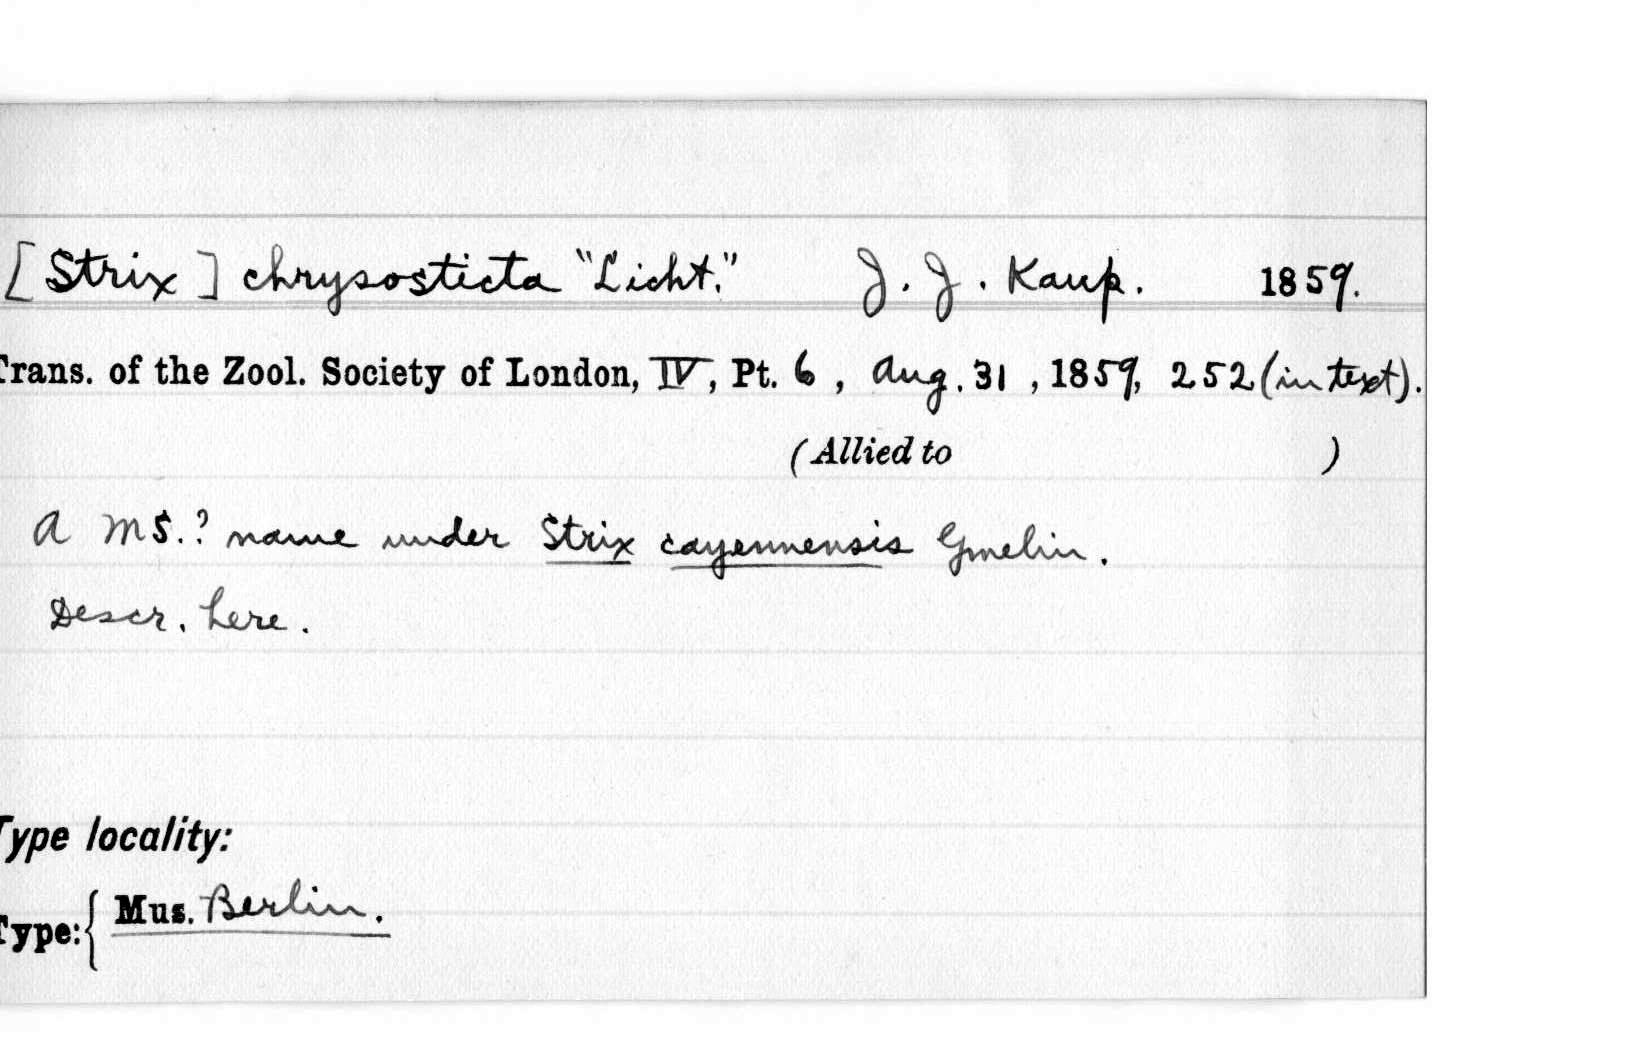 [Strix] chrysosticta "Licht." J. J. Kaup. 1859.
Trans. of the Zool. Society of London, IV, Pt. 6, Aug. 31, 1859, 252 (in text).
(Allied to )
A MS.? name under Strix cayennensis Gmelin.
Descr. here.
Type locality:
Type: { Mus. Berlin.